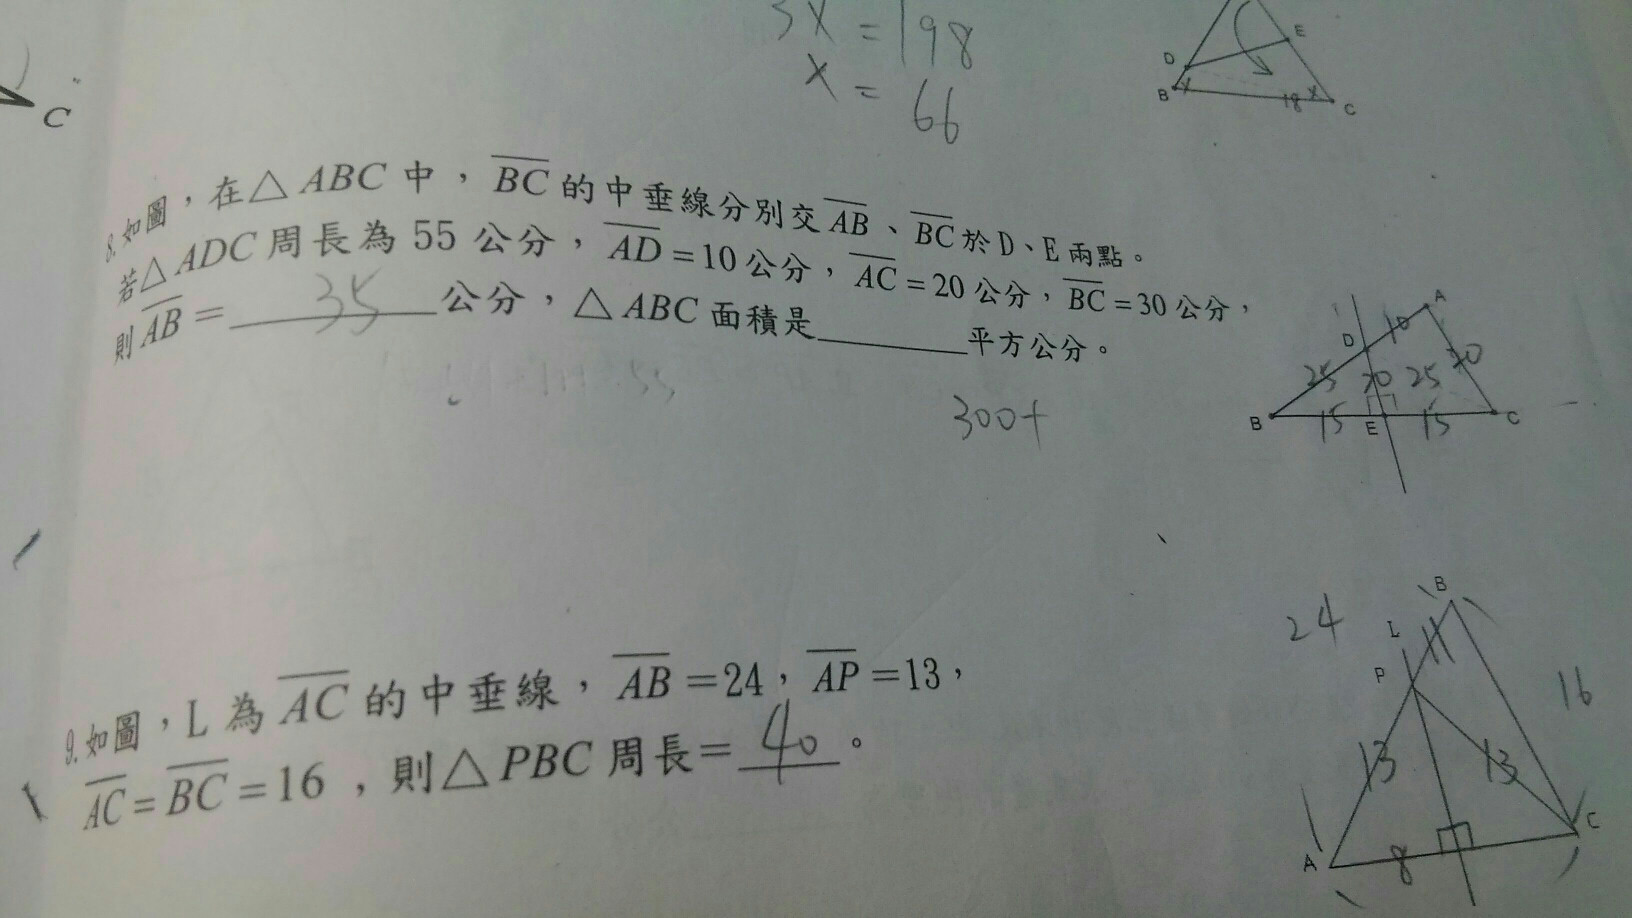 3X = 198
X = 66
D
E
B
18
C
C
8.如圖，在△ABC中，BC的中垂線分別交AB、BC於D、E兩點。
若△ADC周長為55公分，AD=10公分，AC=20公分，BC=30公分，
則AB= 35 公分，△ABC面積是______平方公分。
300+
A
D
10
25
20
25
20
B
15
E
15
C
9.如圖，L為AC的中垂線，AB=24，AP=13，
AC=BC=16，則△PBC周長=40。
24
B
L
11
P
16
13
13
A
8
C